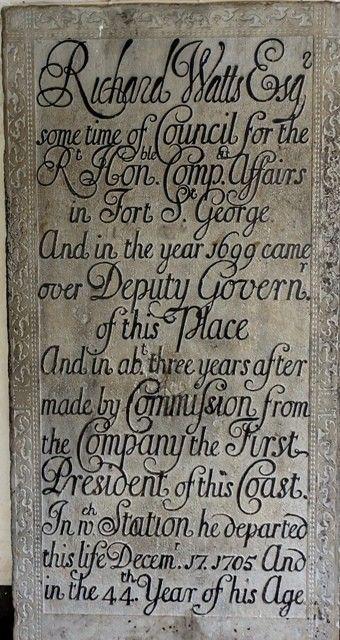 Richard Watts Esqr
some time of Council for the
Rt. Honble. Compnis Affairs
in Fort St. George
And in the year 1699 came
over Deputy Governr.
of this Place
And in abt. three years after
made by Commission from
the Company the First
President of this Coast.
In wch Station he departed
this life Decemr. 17. 1705 And
in the 44th. Year of his Age